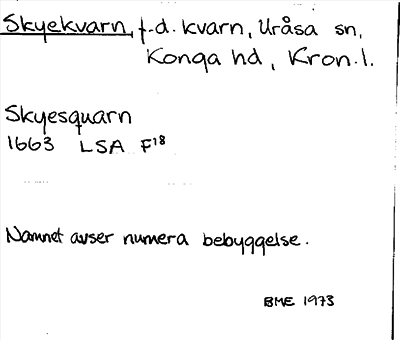 Skyekvarn, f.d. kvarn, Uråsa sn,
Konga hd, Kron.l.
Skyesquarn
1663 LSA F18
Namnet avser numera bebyggelse.
BME 1973